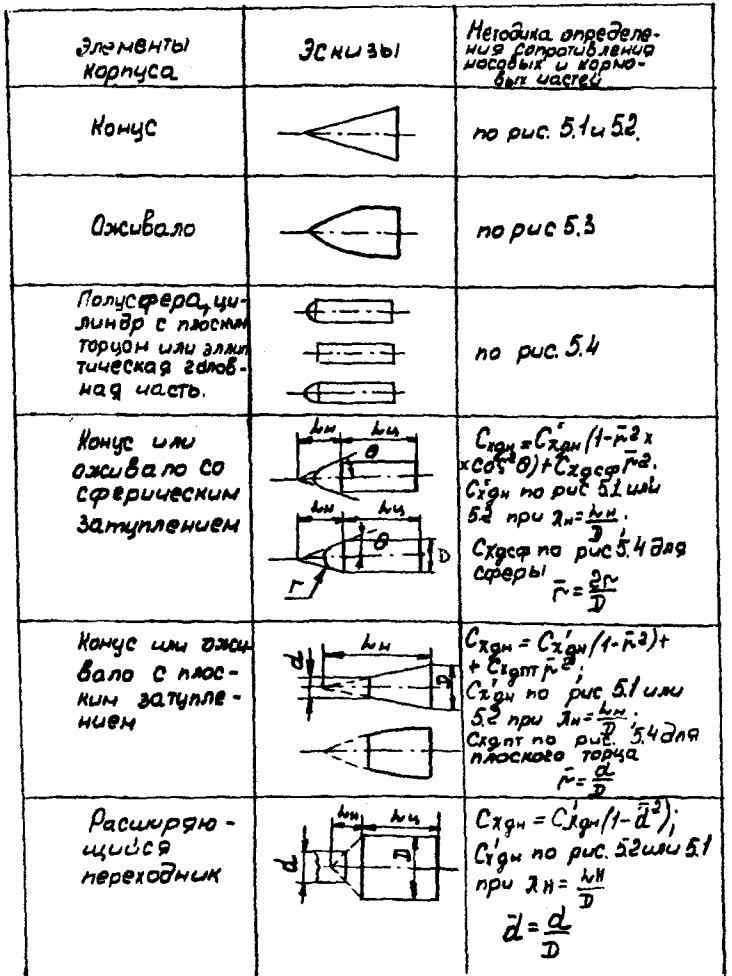 Элементы
корпуса
Эскизы
Методика определе-
ния сопротивления
носовых и кормо-
вых частей
Конус
по рис. 5.1 и 5.2.
Оживало
по рис 5.3
Полусфера, ци-
линдр с плоским
торцом или эллип
тическая голов-
ная часть.
по рис. 5.4
Конус или
оживало со
сферическим
затуплением
Lн Lц
θ
Lн Lц
θ
D
r
Cxдн = C'xдн (1-r̄² x
x cos²θ) + Cxдсф r̄².
C'xдн по рис 5.1 или
5.2 при λн = Lн/D.
Cxдсф по рис 5.4 для
сферы
r̄ = 2r/D
Конус или ожи
вало с плос-
ким затупле-
нием
Lн
d
D
Cxдн = C'xдн (1-r̄²)+
+ Cxдпт r̄²;
C'xдн по рис 5.1 или
5.2 при λн = Lн/D;
Cxдпт по рис. 5.4 для
плоского торца
r̄ = d/D
Расширяю-
щийся
переходник
Lн Lц
d
D
Cxдн = C'xдн (1-d̄²);
C'xдн по рис. 5.2 или 5.1
при λн = Lн/D
d̄ = d/D